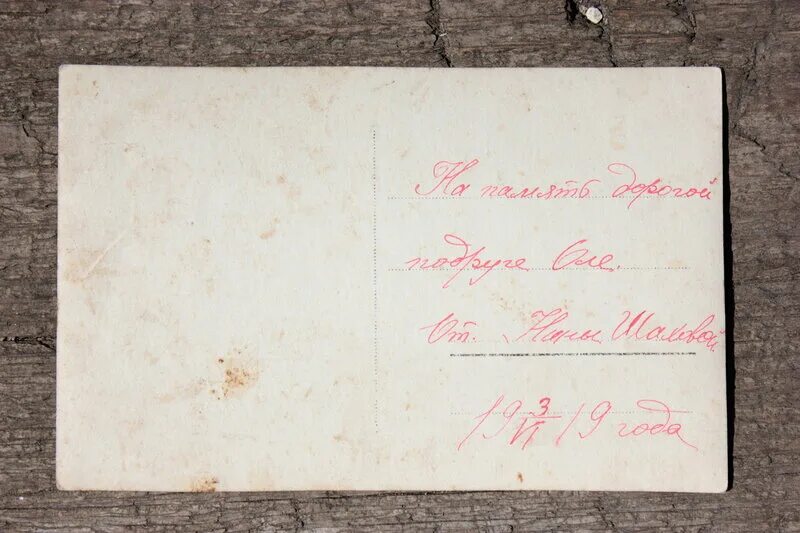 На память дорогой
подруге Оле.
От. Нины Шаховой.
19 3/VI 19 года